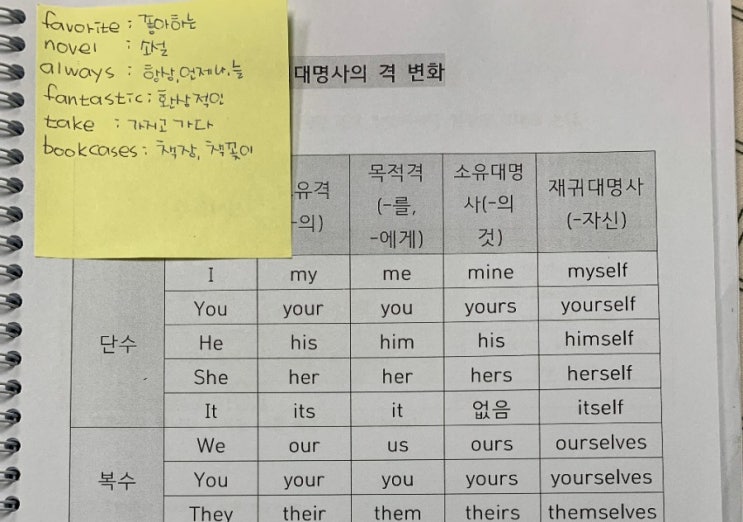 favorite : 좋아하는
novel : 소설
always : 항상, 언제나, 늘
fantastic : 환상적인
take : 가지고 가다
bookcases : 책장, 책꽂이
대명사의 격 변화
유격 목적격 소유대명 재귀대명사
의) (-를, 사(-의 (-자신)
-에게) 것)
단수
I my me mine myself
You your you yours yourself
He his him his himself
She her her hers herself
It its it 없음 itself
복수
We our us ours ourselves
You your you yours yourselves
They their them theirs themselves